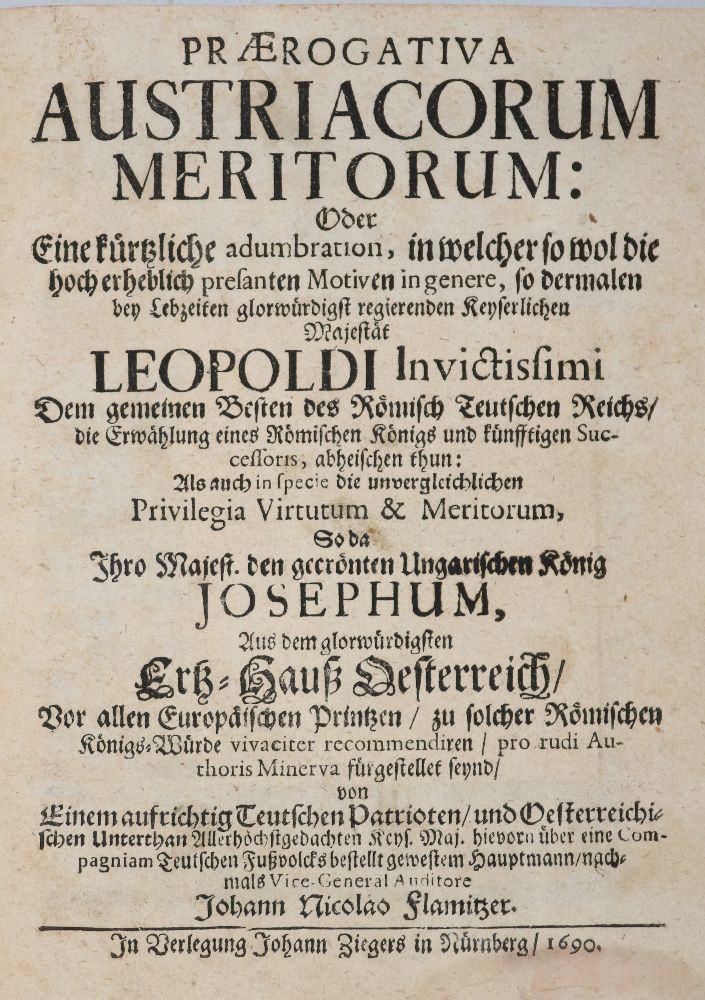 PRÆROGATIVA
AUSTRIACORUM
MERITORUM:
Oder
Eine kürtzliche adumbration, in welcher so wol die
hoch erheblich presanten Motiven in genere, so dermalen
bey Lebzeiten glorwürdigst regierenden Keyserlichen
Majestät
LEOPOLDI Invictissimi
Dem gemeinen Besten des Römisch Teutschen Reichs/
die Erwählung eines Römischen Königs und künfftigen Suc-
cessoris, abheischen thun:
Als auch in specie die unvergleichlichen
Privilegia Virtutum & Meritorum,
So da
Ihro Majest. den gecrönten Ungarischen König
JOSEPHUM,
Aus dem glorwürdigsten
Ertz-Hauß Oesterreich/
Vor allen Europäischen Printzen / zu solcher Römischen
Königs-Würde vivaciter recommendiren / pro rudi Au-
thoris Minerva fürgestellet seynd/
von
Einem aufrichtig Teutschen Patrioten/ und Oesterreichi-
schen Unterthan Allerhöchstgedachten Keys. Maj. hievorn über eine Com-
pagniam Teutschen Fußvolcks bestellt gewestem Hauptmann/nach-
mals Vice-General Auditore
Johann Nicolao Flamitzer.
In Verlegung Johann Ziegers in Nürnberg/ 1690.